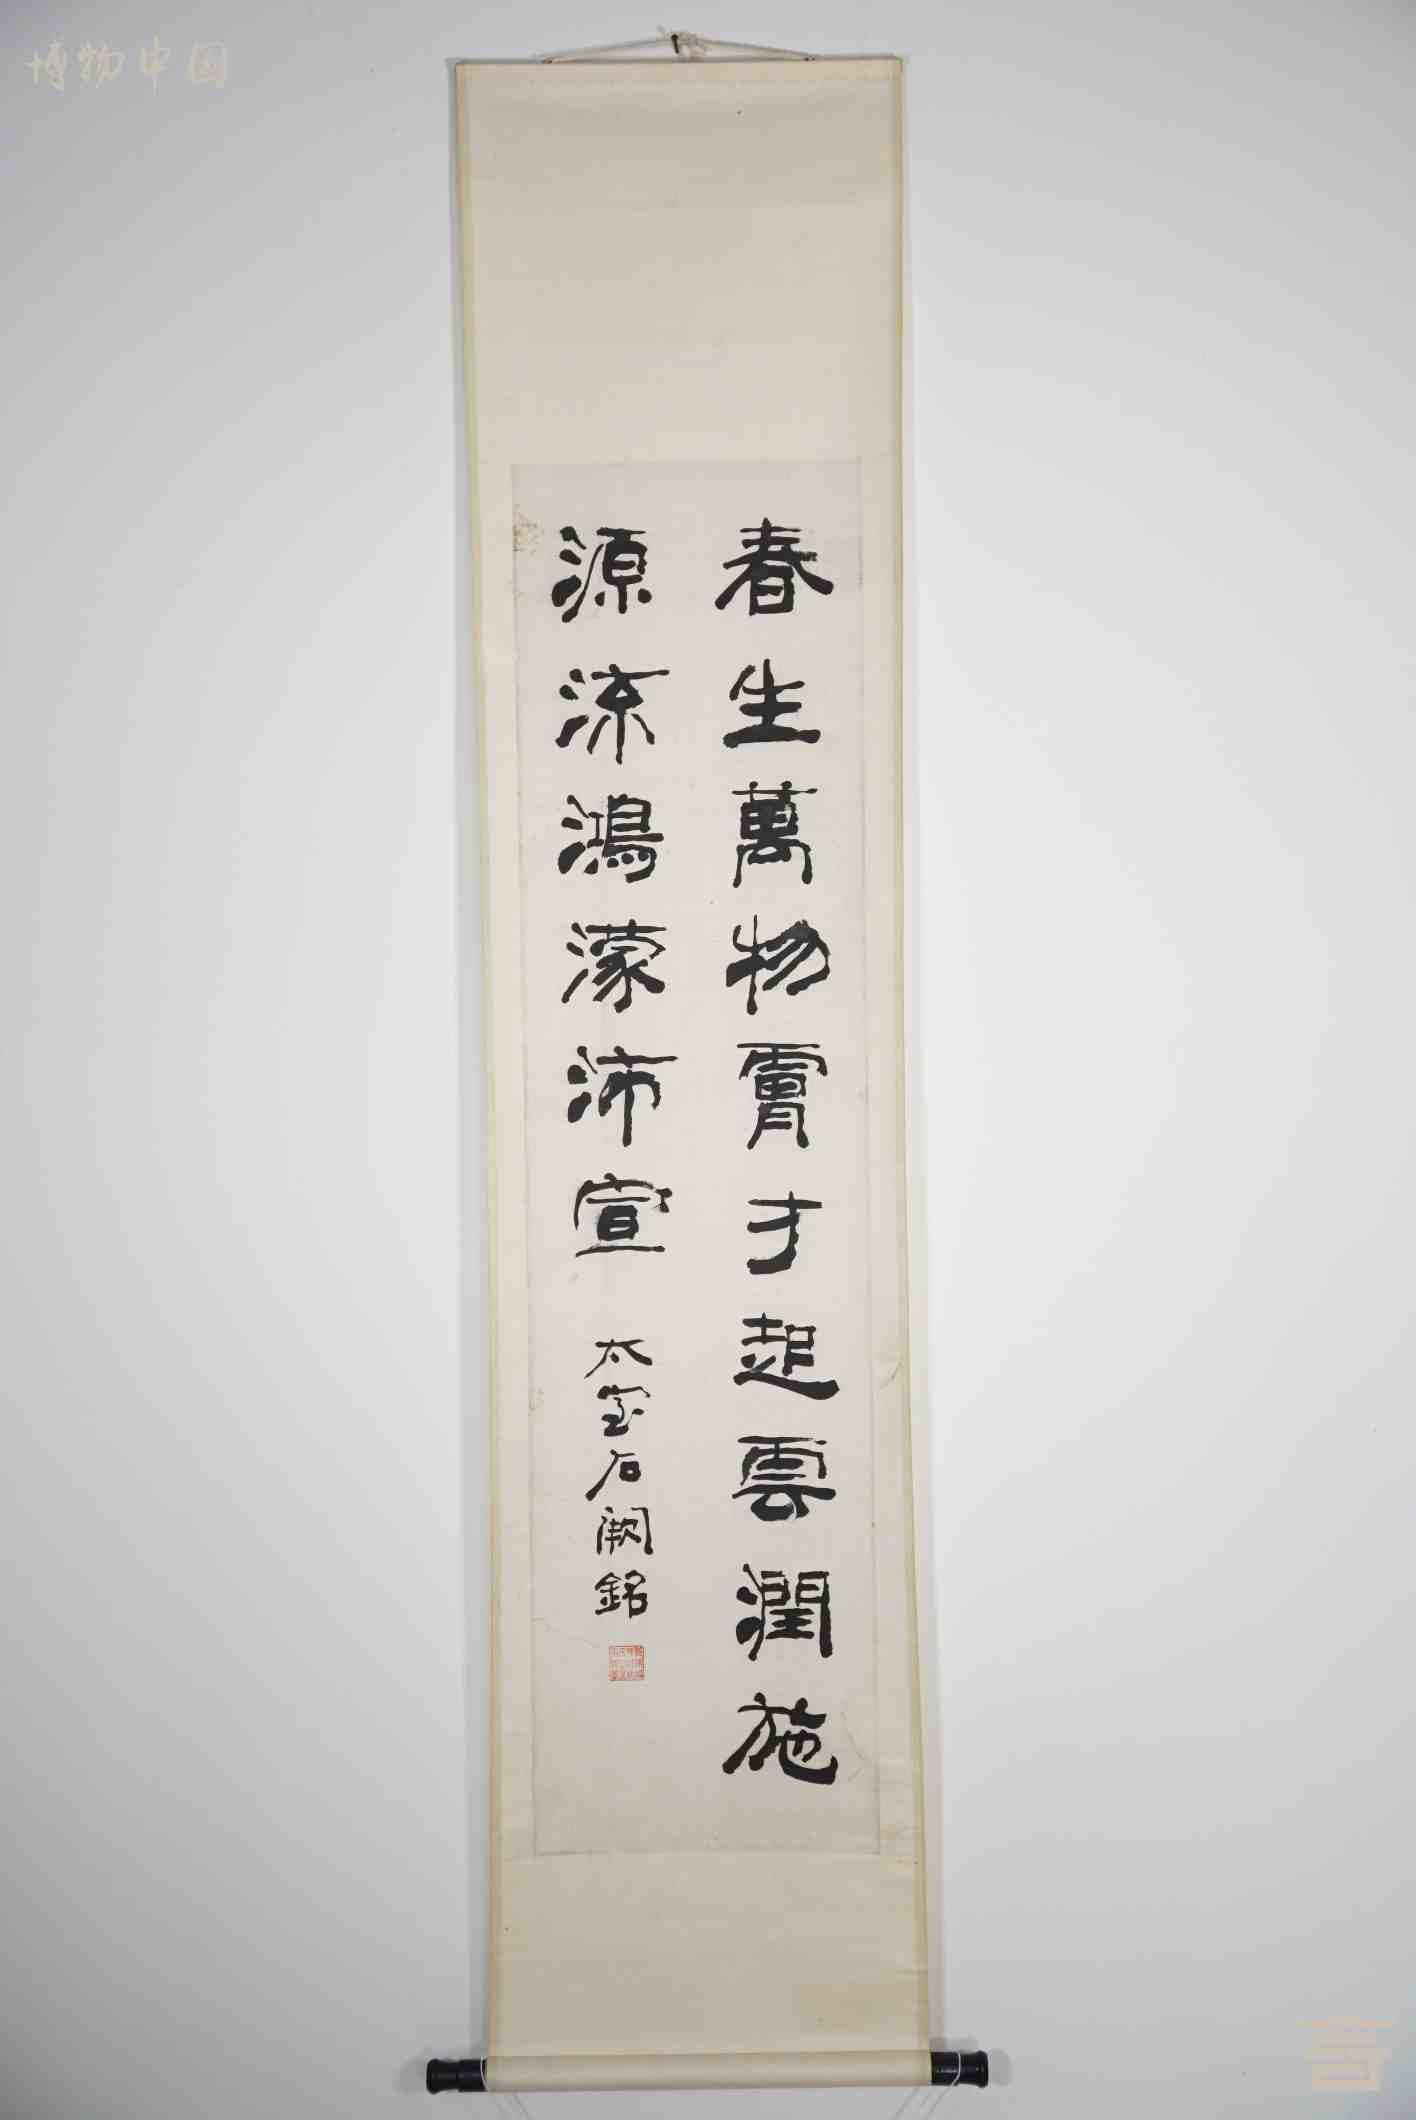 博物中国
春生萬物膚寸起雲潤施
源流鴻濛沛宣
太室石闕銘